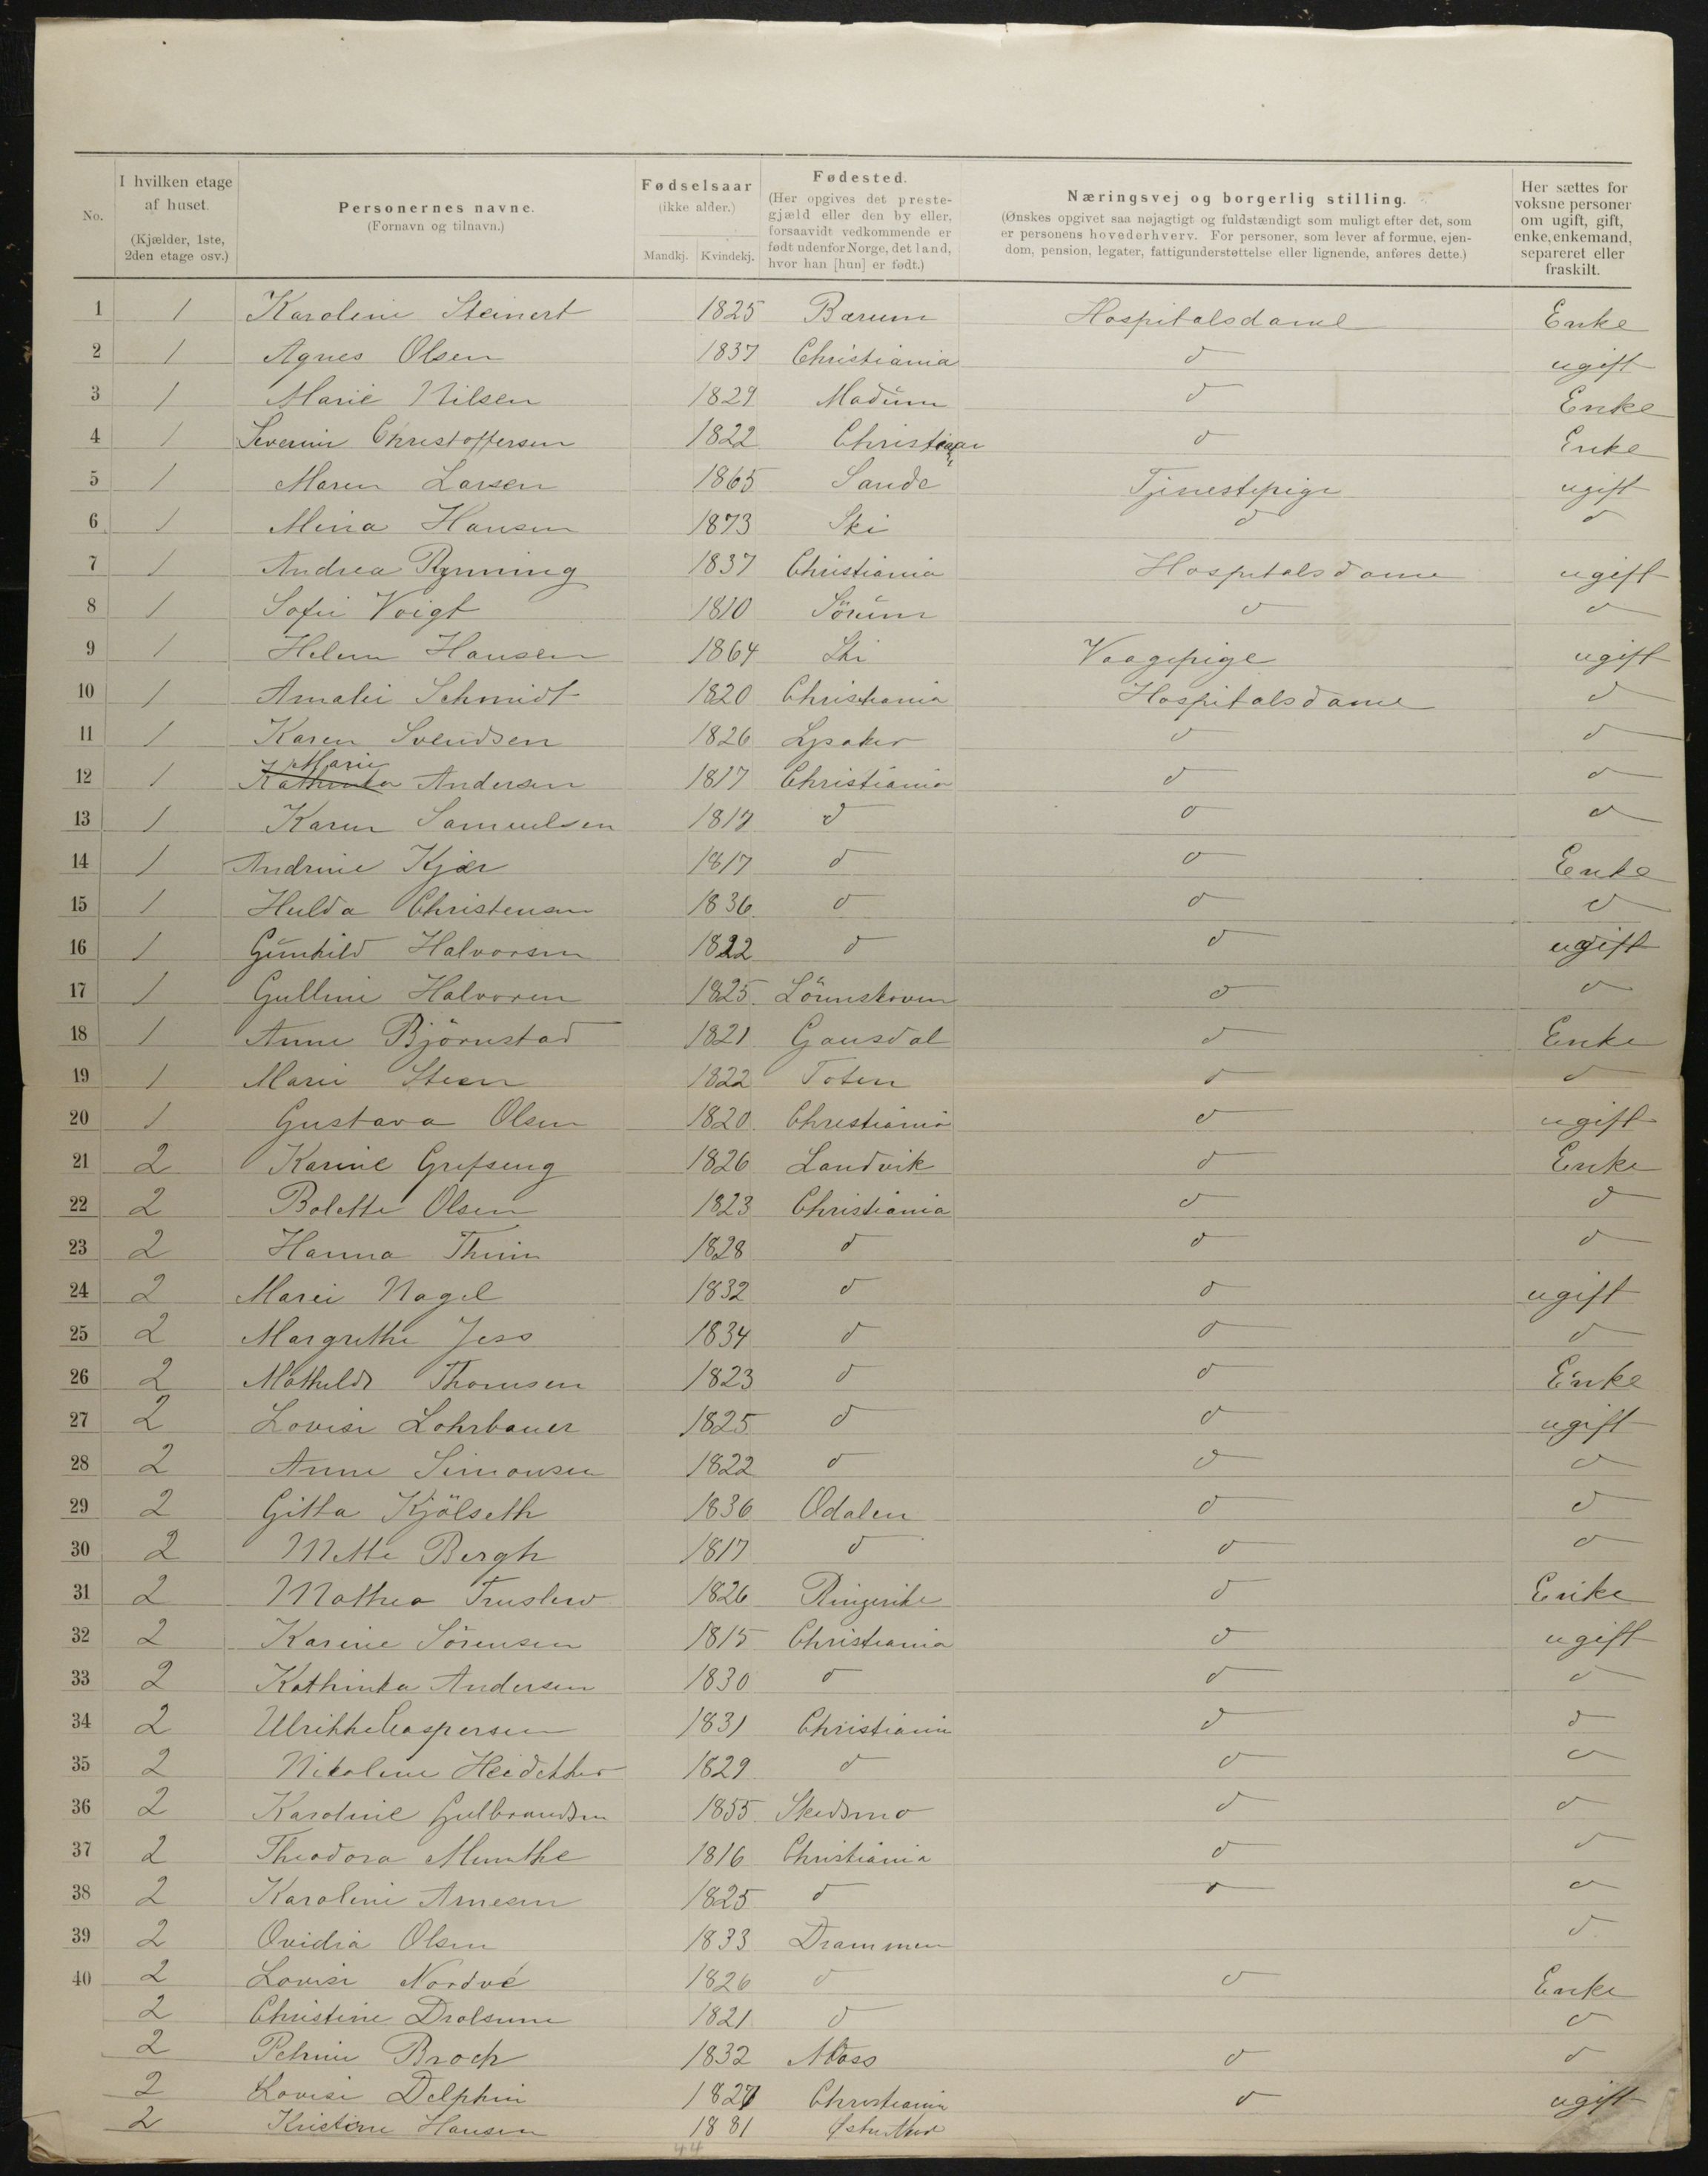 No.
I hvilken etage af huset. (Kjælder, 1ste, 2den etage osv.)
Personernes navne. (Fornavn og tilnavn.)
Fødselsaar (ikke alder.) Mandkj. Kvindekj.
Fødested. (Her opgives det prestegjæld eller den by eller, forsaavidt vedkommende er født udenfor Norge, det land, hvor han [hun] er født.)
Næringsvej og borgerlig stilling. (Ønskes opgivet saa nøjagtigt og fuldstændigt som muligt efter det, som er personens hovederhverv. For personer, som lever af formue, ejendom, pension, legater, fattigunderstøttelse eller lignende, anføres dette.)
Her sættes for voksne personer om ugift, gift, enke, enkemand, separeret eller fraskilt.
1 1 Karoline Steinert 1825 Bærum Hospitalsdame Enke
2 1 Agnes Olsen 1837 Christiania d ugift
3 1 Marie Nilsen 1829 Modum d Enke
4 1 Severine Christoffersen 1822 d Enke
5 1 Maren Larsen 1865 Sande Tjenestepige ugift
6 1 Mina Hansen 1873 Ski d d
7 1 Andrea Rynning 1837 Christiania Hospitalsdame ugift
8 1 Sofie Voigt 1810 Sörum d d
9 1 Helene Hansen 1864 Ski Vaagepige ugift
10 1 Amalie Schmidt 1820 Christiania Hospitalsdame d
11 1 Karen Svendsen 1826 Lysaker d d
12 1 Marie Andersen 1817 Christiania d d
13 1 Karen Samuelsen d d d
14 1 Andrine Kjær 1817 d d Enke
15 1 Hulda Christensen 1836 d d d
16 1 Gunhild Halvorsen 1822 d d ugift
17 1 Gulline Halvorsen 1825 Lörenskoven d d
18 1 Anne Björnstad 1821 Gausdal d Enke
19 1 Marie Steen 1822 Toten d d
20 1 Gustava Olsen 1820 Christiania d ugift
21 2 Karine Grefseng 1826 Landvik d Enke
22 2 Bolette Olsen 1823 Christiania d d
23 2 Hanna 1828 d d d
24 2 Marie Nagel 1832 d d ugift
25 2 Margrethe Jess 1834 d d d
26 2 Mathilde Thomsen 1823 d d Enke
27 2 Lovise Lohrbauer 1825 d d ugift
28 2 Anne Simonsen 1822 d d d
29 2 Gitta Kjölseth 1836 Odalen d d
30 2 Mette Bergh 1817 d d d
31 2 Mathea Truslew 1826 Ringerike d Enke
32 2 Karine Sörensen 1815 Christiania d ugift
33 2 Kathinka Andersen 1830 d d d
34 2 Ulrikke Caspersen 1831 Christiania d d
35 2 Nikoline 1829 d d d
36 2 Karoline Gulbrandsen 1855 Skedsmo d d
37 2 Theodora Munthe 1816 Christiania d d
38 2 Karoline Arnesen 1825 d d d
39 2 Ovidia Olsen 1833 Drammen d
40 2 Lovise Nordvé 1826 d d Enke
2 Christine Drolsum 1821 d d
2 Petrine Broch 1832 Moss d d
2 Lovise Delphin Christiania d ugift
2 Kristine Hansen 1881
44